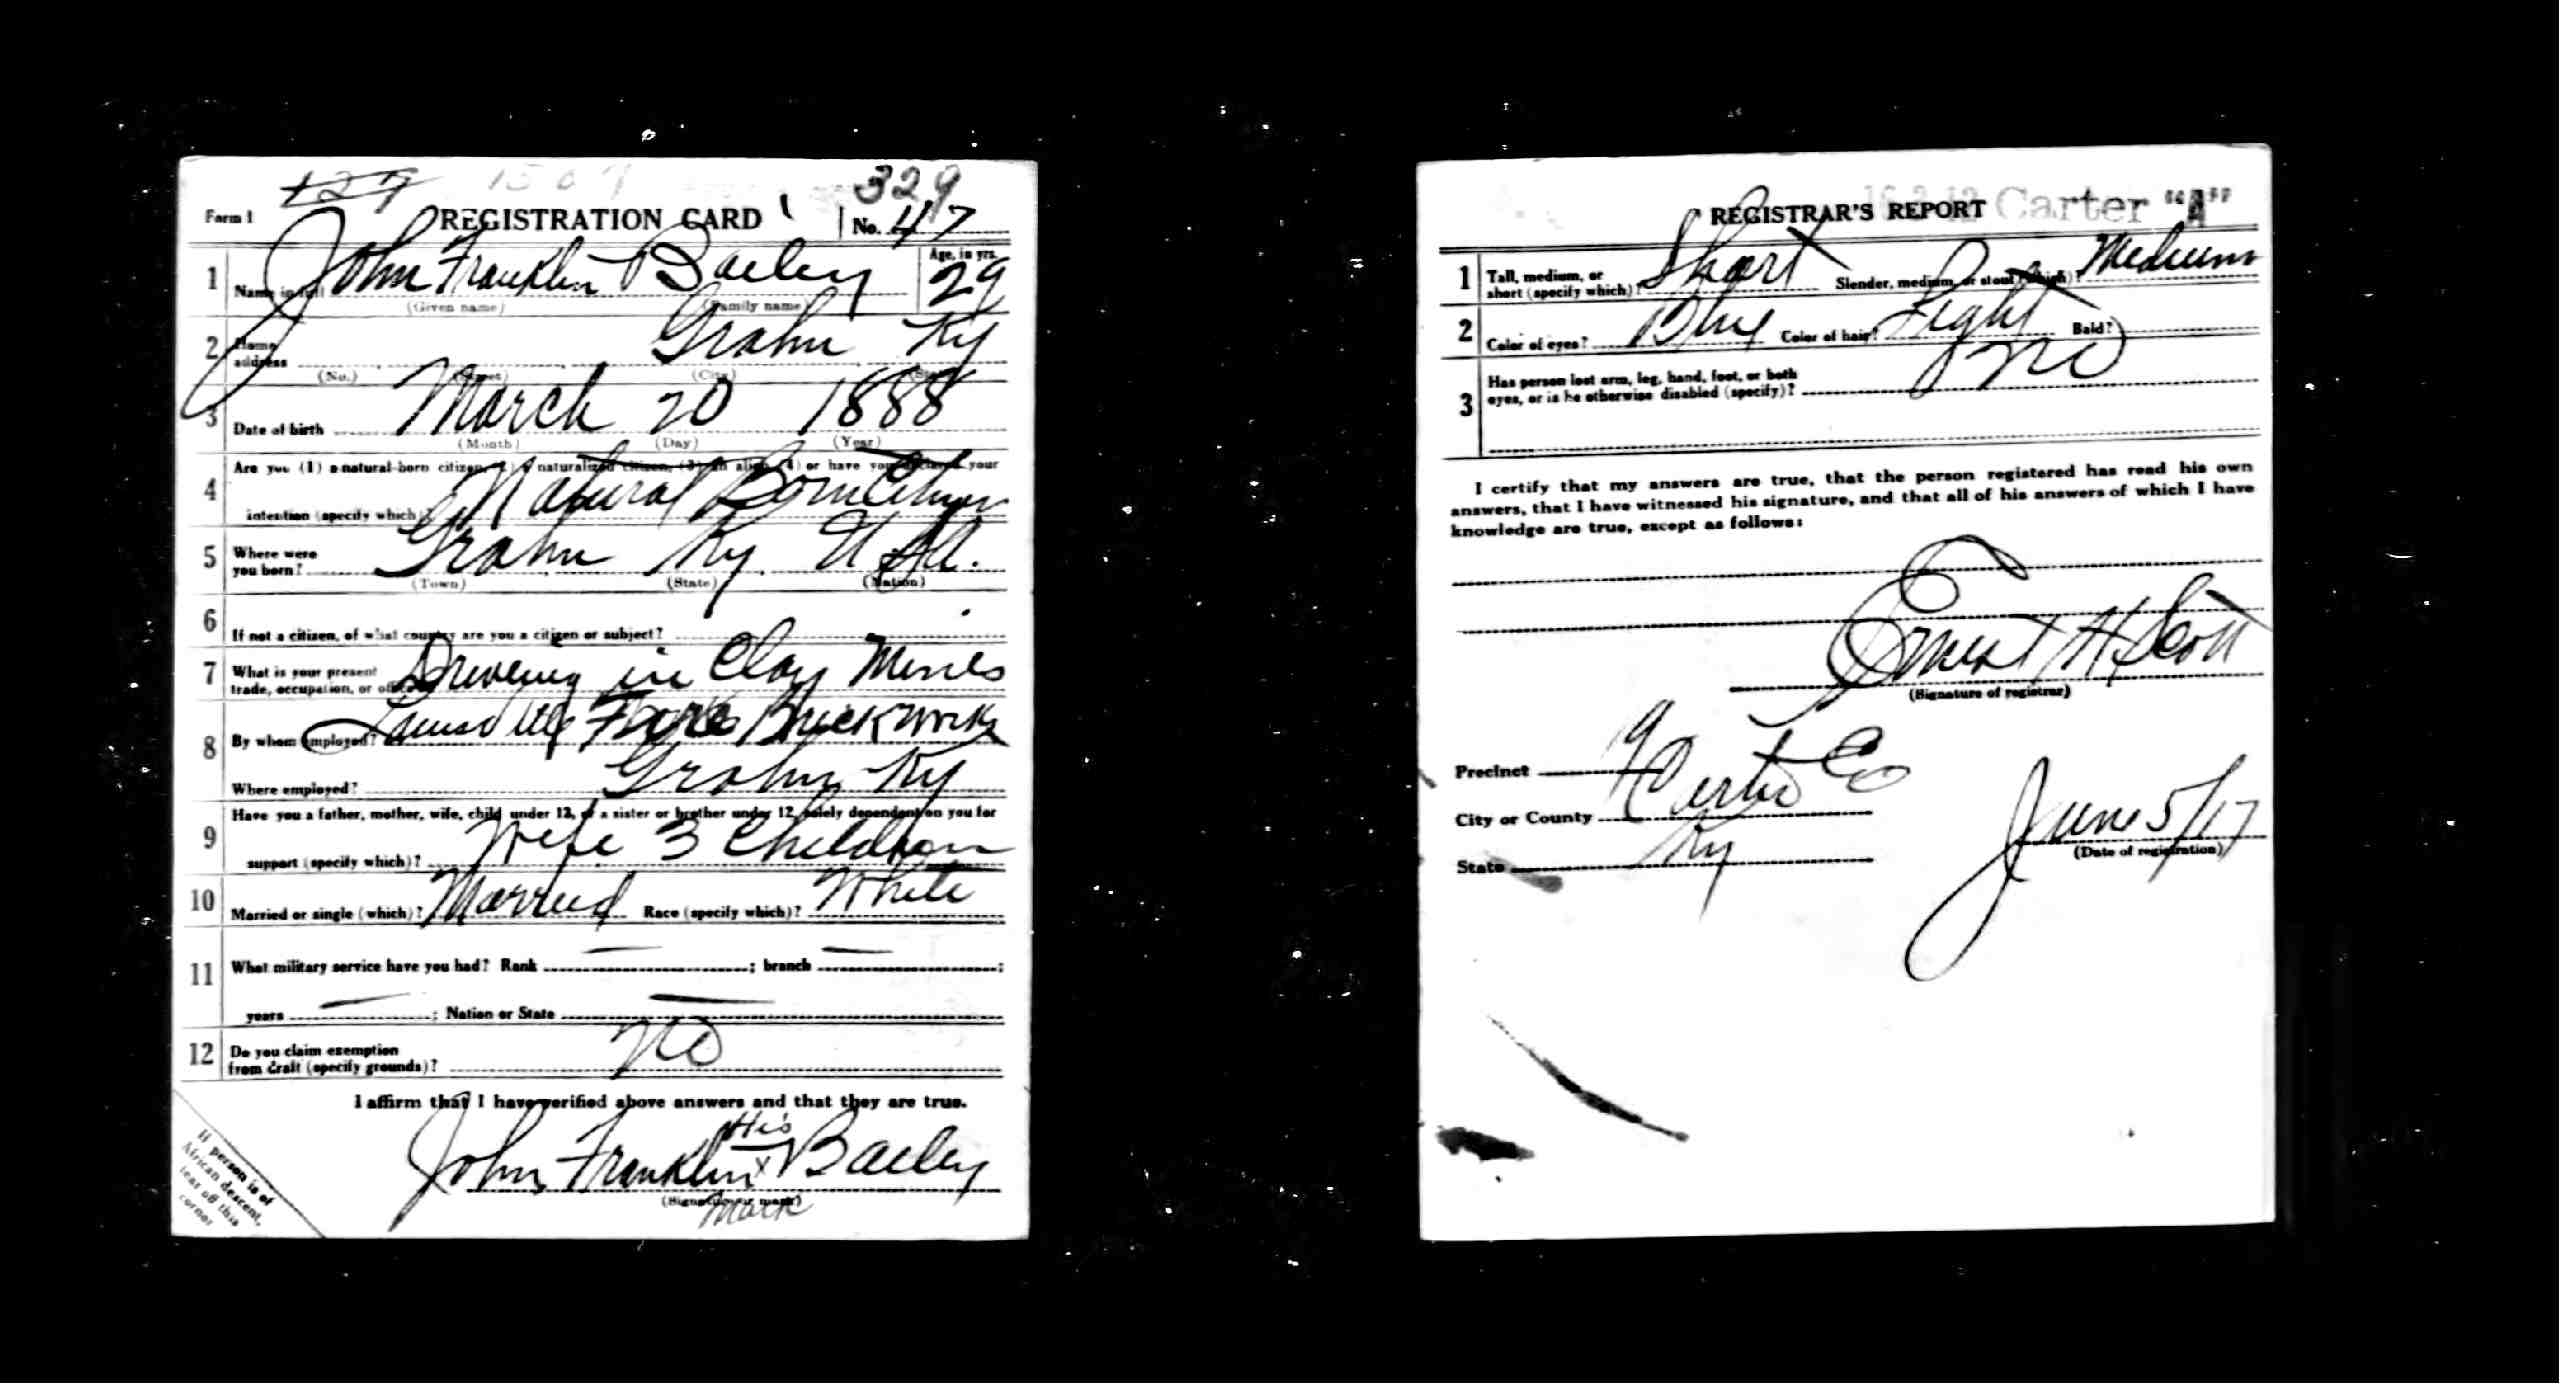 127 1507 329
Form 1 REGISTRATION CARD No. 47
1 Name in full John Franklin Bailey Age, in yrs. 29
(Given name) (Family name)
2 Home address Grahn Ky
(No.) (Street) (City) (State)
3 Date of birth March 20 1888
(Month) (Day) (Year)
Are you (1) a natural-born citizen, (2) a naturalized citizen, (3) an alien, (4) or have you declared your
4 intention (specify which)? Natural Born Citizen
5 Where were you born? Grahn Ky. U.S.A.
(Town) (State) (Nation)
6 If not a citizen, of what country are you a citizen or subject?
7 What is your present
trade, occupation, or office? Driveing in Clay Mines
8 By whom employed? Louisville Fire Brick Works
Where employed? Grahn Ky
Have you a father, mother, wife, child under 12, or a sister or brother under 12, solely dependent on you for
9 support (specify which)? Wife 3 Children
10 Married or single (which)? Married Race (specify which)? White
11 What military service have you had? Rank — ; branch — ;
years — ; Nation or State —
12 Do you claim exemption
from draft (specify grounds)? No
I affirm that I have verified above answers and that they are true.
His
John Franklin x Bailey
(Signature or mark)
Mark
If person is of
African descent,
tear off this
corner
16-3-12 Carter "A"
REGISTRAR'S REPORT
1 Tall, medium, or
short (specify which)? Short Slender, medium, or stout (which)? Medium
2 Color of eyes? Blue Color of hair? Light Bald?
Has person lost arm, leg, hand, foot, or both
3 eyes, or is he otherwise disabled (specify)? No
I certify that my answers are true, that the person registered has read his own
answers, that I have witnessed his signature, and that all of his answers of which I have
knowledge are true, except as follows:
Ernest H Scott
(Signature of registrar)
Precinct 19
City or County Carter Co
State Ky
June 5/17
(Date of registration)